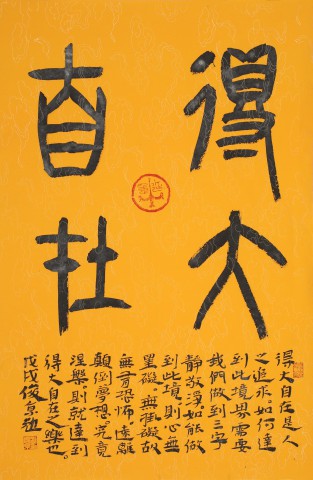 得大
自在
得大自在是人
之追求。如何達
到此境界需要
我們做到三字
靜敬淨。如能做
到此境則心無
罣礙。無罣礙故
無有恐怖。遠離
顛倒夢想。究竟
涅槃。則就達到
得大自在之樂也。
戊戌俊京